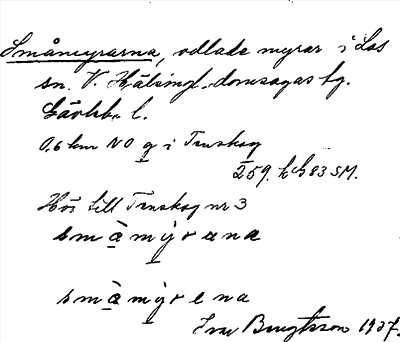 Småmyrarna, odlade myrar i Los
sn. V. Hälsingl. domsagas tg.
Gävleb. l.
0,6 km NO g i Tenskog
259. h ch 83 SM.
Hör till Tenskog nr 3
småmỳrana
småmỳrena
Ivar Bengtsson 1937.